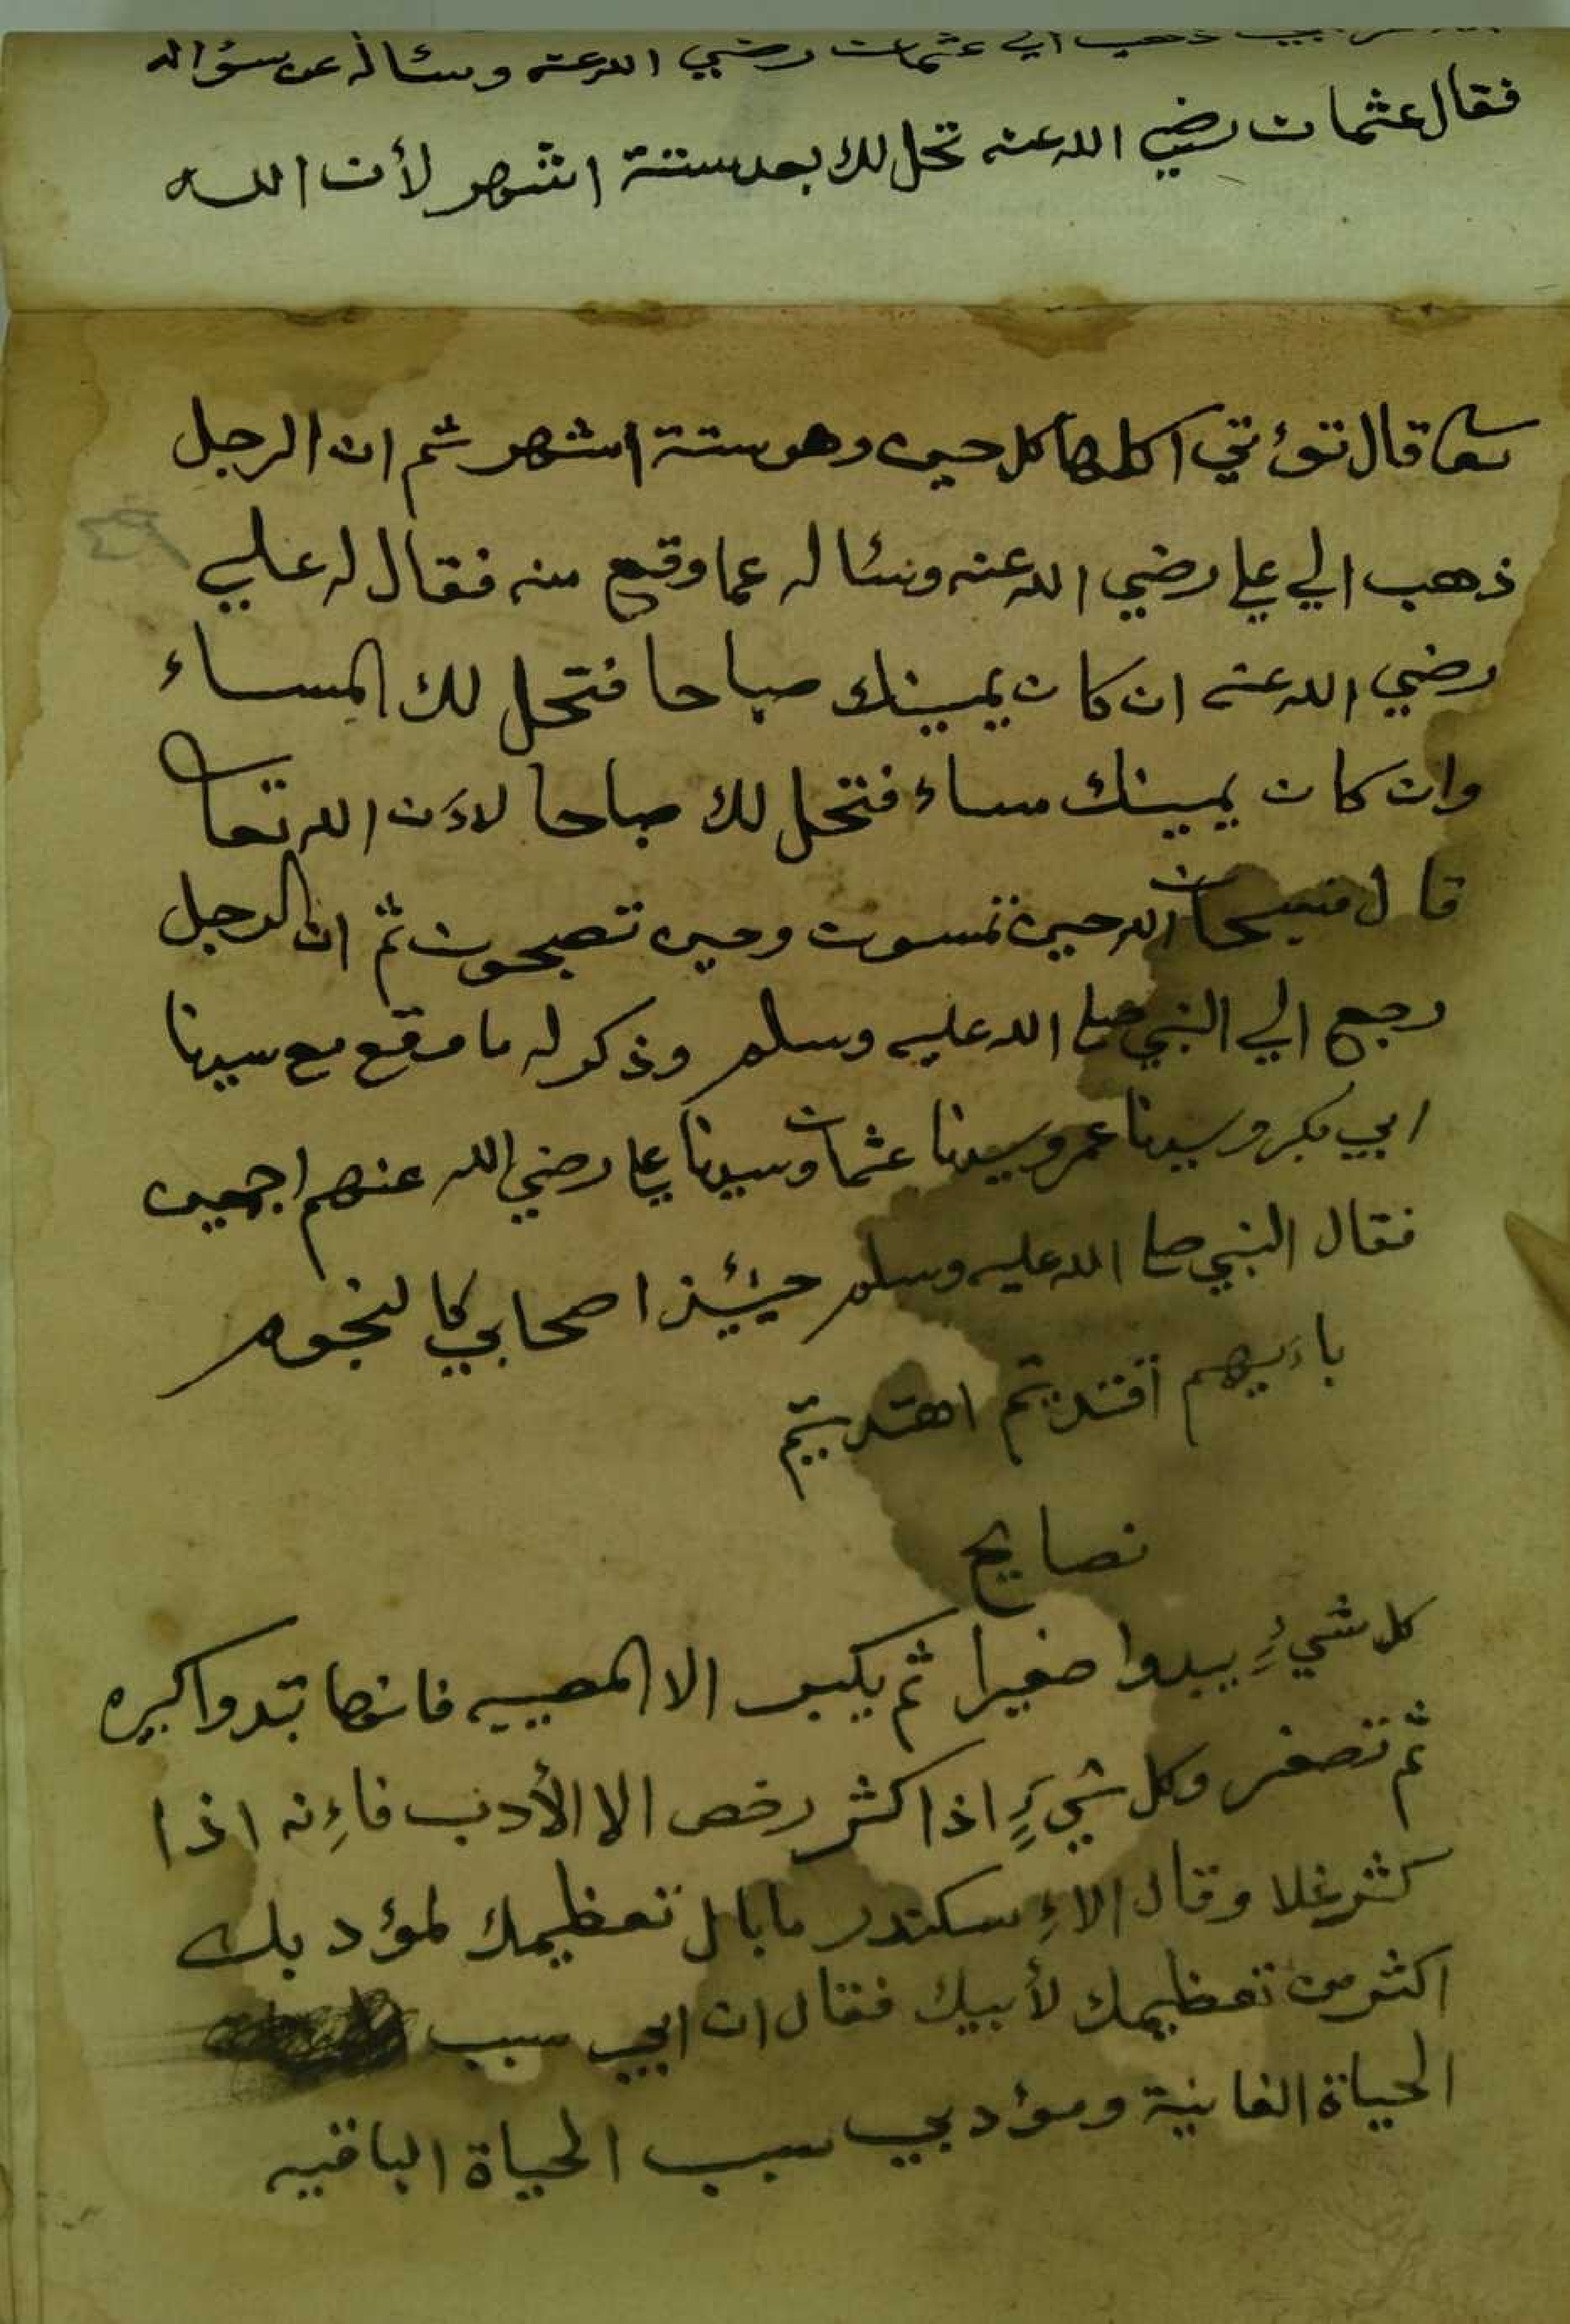 ذهب الي عثمان رضي الله عنه وسئاله عن سؤاله
فقال عثمان رضي الله عنه تحل لك بعد ستة اشهر لأن الله
تعا قال تؤتي اكلها كل حين وهو ستة اشهر ثم ان الرجل
ذهب الي علي رضي الله عنه وسئاله عما وقع منه فقال له علي
رضي الله عنه ان كان يمينك صباحا فتحل لك المساء
وان كان يمينك مساء فتحل لك صباحا لاءن الله تعا
قال فسبحان الله حين تمسون وحين تصبحون ثم ان الرجل
رجع الي النبي صلى الله عليه وسلم وذكر له ما وقع مع سيدنا
ابي بكر وسيدنا عمر وسيدنا عثمان وسيدنا علي رضي الله عنهم اجمعين
فقال النبي صلى الله عليه وسلم حينئيذ اصحابي كالنجوم
باءييهم اقتديتم اهتديتم
نصايح
كل شيءٍ يبدوا صغيرا ثم يكبر الا المصيبه فانها تبدوا كبيره
ثم تصغر وكل شيءٍ اذا كثر رخص الا الأدب فاءِنه اذا
كثر غلا وقال الاءِسكندر ما بال تعظيمك لمؤدبك
اكثر من تعظيمك لأبيك فقال ان ابي سبب
الحياة الفانية ومؤدبي سبب الحياة الباقيه